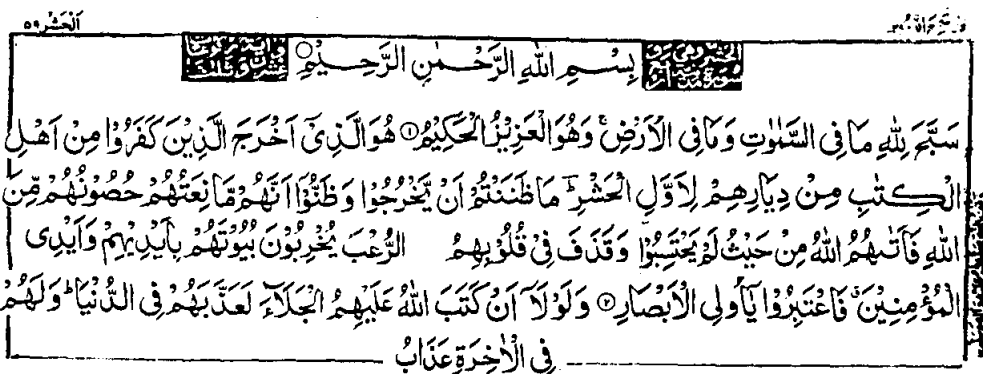 اَلْحَشْر ٥٩
بِسْمِ اللّٰهِ الرَّحْمٰنِ الرَّحِيْمِ
سَبَّحَ لِلّٰهِ مَا فِى السَّمٰوٰتِ وَمَا فِى الْاَرْضِ ۚ وَهُوَ الْعَزِيْزُ الْحَكِيْمُ ۝۱ هُوَ الَّذِىْٓ اَخْرَجَ الَّذِيْنَ كَفَرُوْا مِنْ اَهْلِ
الْكِتٰبِ مِنْ دِيَارِهِمْ لِاَوَّلِ الْحَشْرِ ؕ مَا ظَنَنْتُمْ اَنْ يَّخْرُجُوْا وَظَنُّوْٓا اَنَّهُمْ مَّانِعَتُهُمْ حُصُوْنُهُمْ مِّنَ
اللّٰهِ فَاَتٰىهُمُ اللّٰهُ مِنْ حَيْثُ لَمْ يَحْتَسِبُوْا وَقَذَفَ فِىْ قُلُوْبِهِمُ الرُّعْبَ يُخْرِبُوْنَ بُيُوْتَهُمْ بِاَيْدِيْهِمْ وَاَيْدِى
الْمُؤْمِنِيْنَ ۗ فَاعْتَبِرُوْا يٰٓاُولِى الْاَبْصَارِ ۝۲ وَلَوْلَآ اَنْ كَتَبَ اللّٰهُ عَلَيْهِمُ الْجَلَآءَ لَعَذَّبَهُمْ فِى الدُّنْيَا ؕ وَلَهُمْ
فِى الْاٰخِرَةِ عَذَابُ